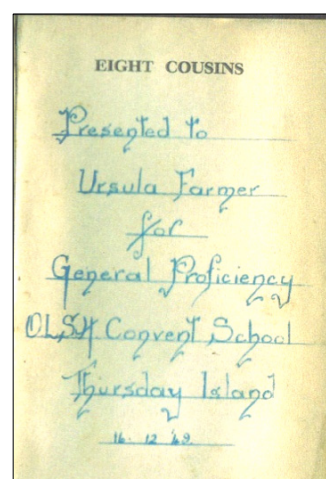 EIGHT COUSINS
Presented to
Ursula Farmer
for
General Proficiency
O.L.S.H Convent School
Thursday Island
16. 12 '49.